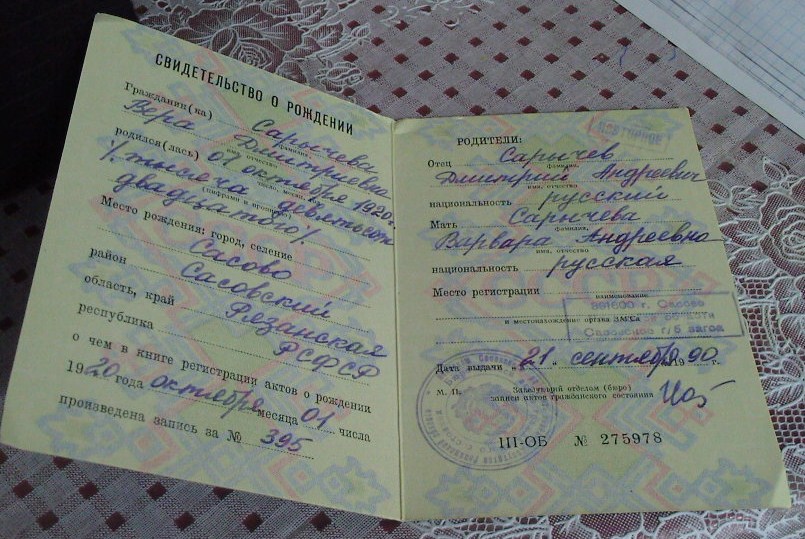 СВИДЕТЕЛЬСТВО О РОЖДЕНИИ
Гражданин(ка) Сарычева
фамилия,
Вера Дмитриевна
имя, отчество
родился(лась) 01 октября 1920г.
число, месяц, год
/тысяча девятьсот
(цифрами и прописью)
двадцатого/.
Место рождения: город, селение
Сасово
район Сасовский
область, край Рязанская
республика РСФСР
о чем в книге регистрации актов о рождении
1920 года октября месяца 01 числа
произведена запись за № 395
ПОВТОРНОЕ
РОДИТЕЛИ:
Отец Сарычев
фамилия,
Дмитрий Андреевич
имя, отчество
национальность русский
Мать Сарычева
фамилия,
Варвара Андреевна
имя, отчество
национальность русская
Место регистрации
наименование
391600 г. Сасово
и местонахождение органа ЗАГСа
области
Сасовское г/б загса
Дата выдачи „21„ сентября 1990 г.
М. П.
Заведующий отделом (бюро)
записи актов гражданского состояния
III-ОБ № 275978